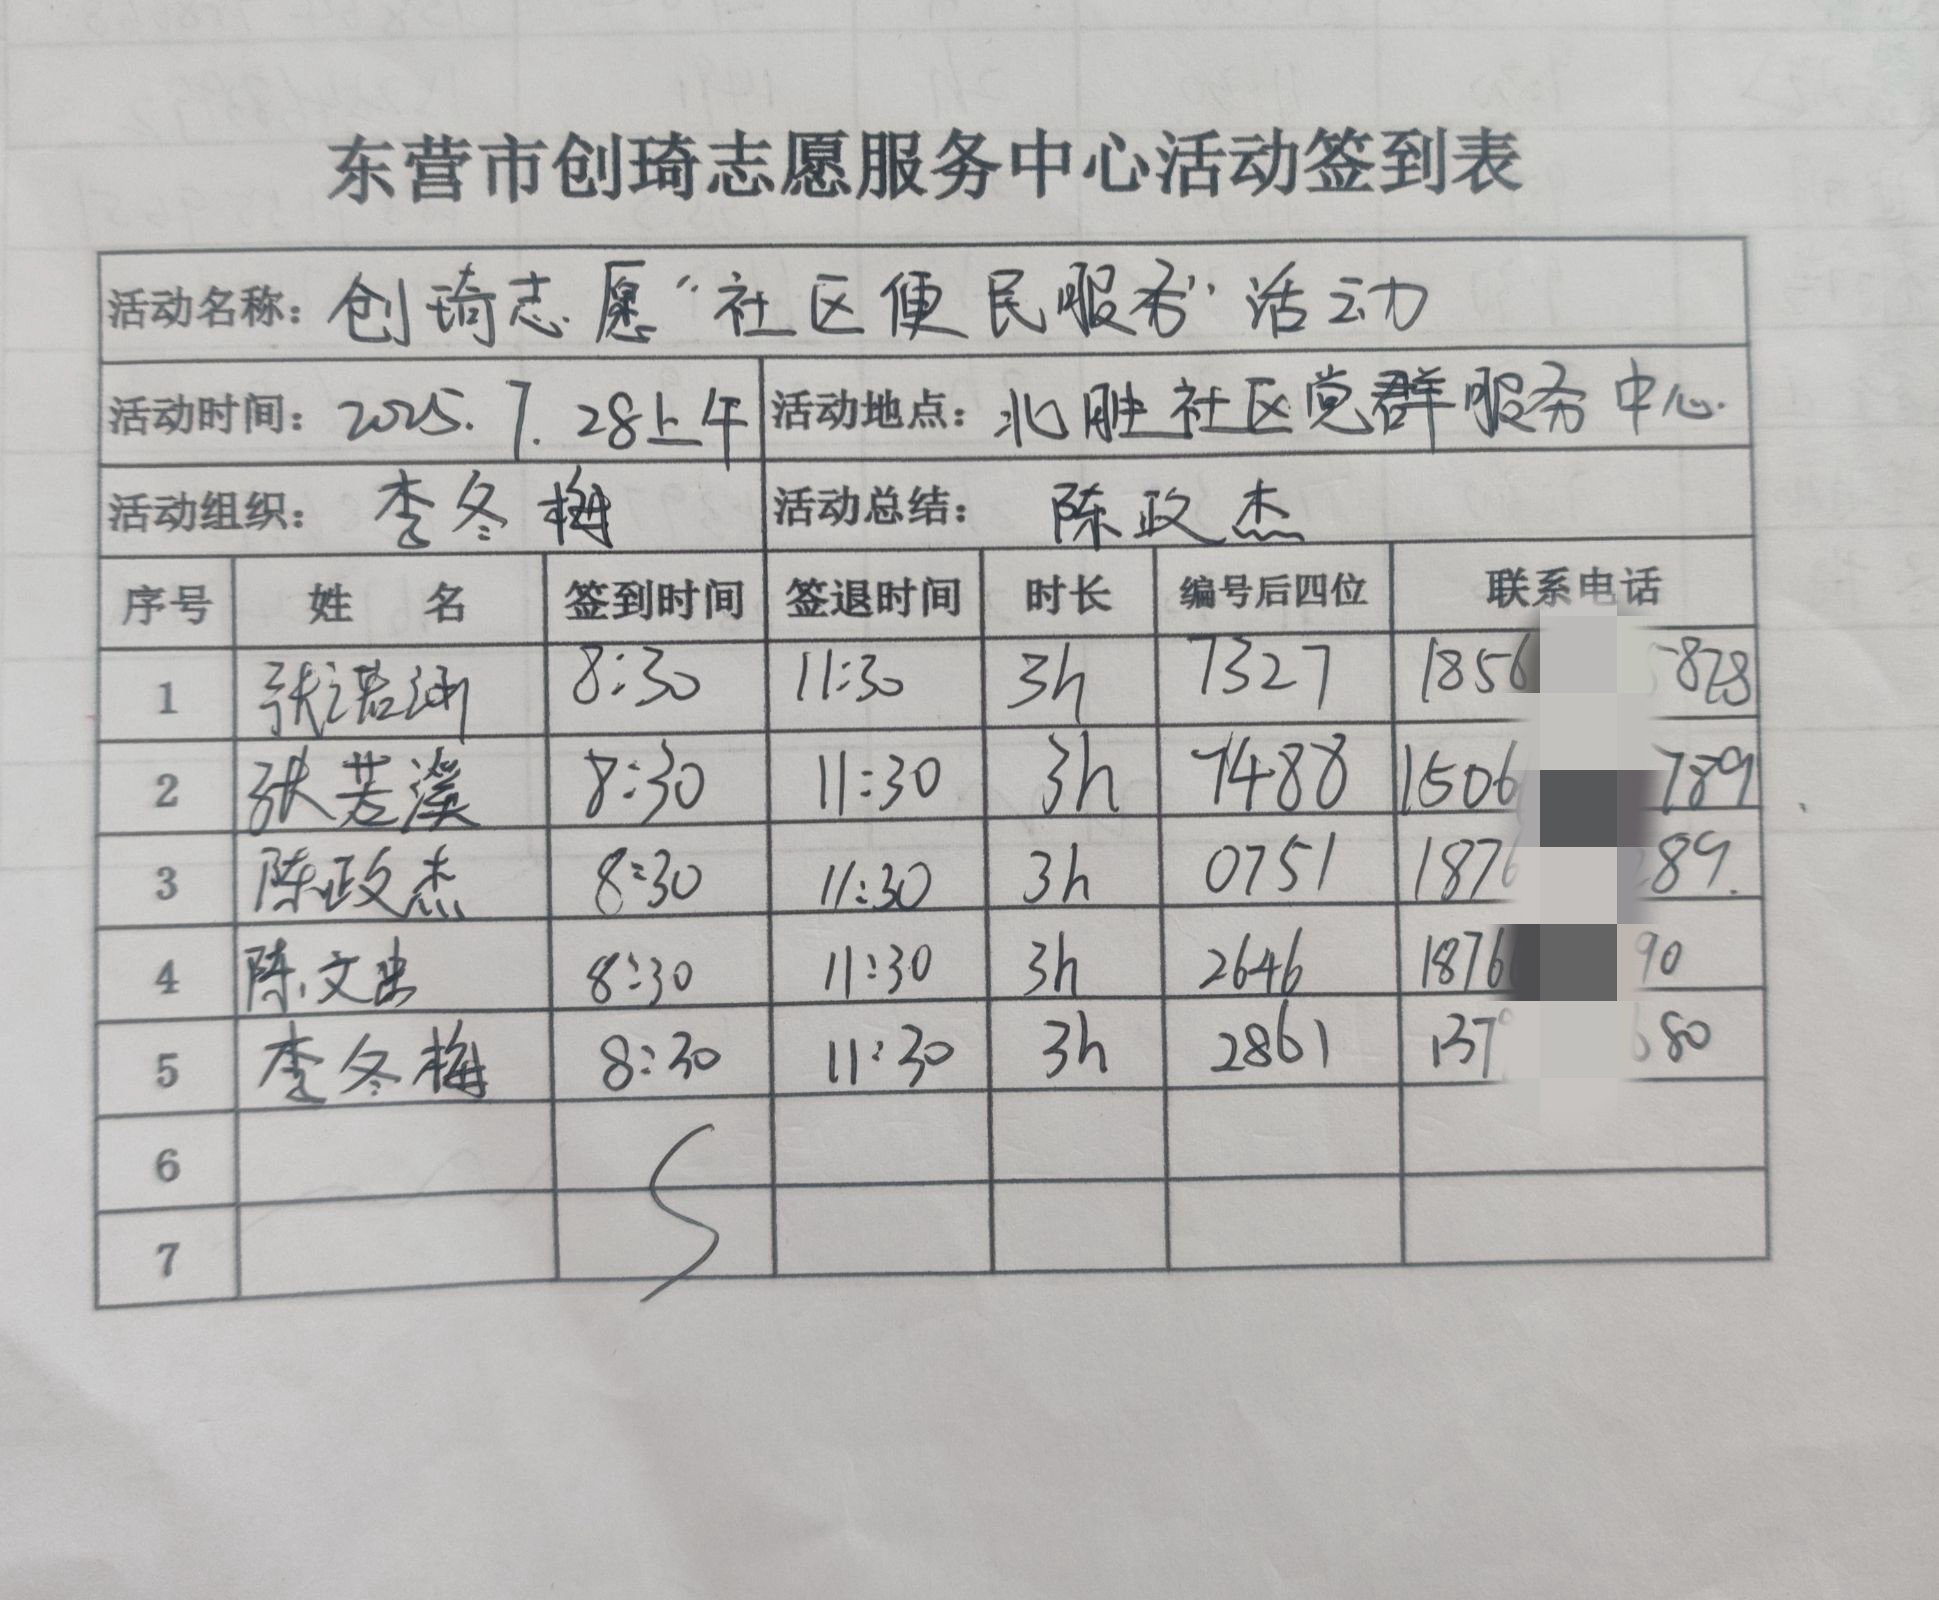 东营市创琦志愿服务中心活动签到表
活动名称: 创琦志愿“社区便民服务”活动
活动时间: 2025.7.28上午 活动地点: 北胜社区党群服务中心.
活动组织: 李冬梅 活动总结: 陈政杰
序号 姓 名 签到时间 签退时间 时长 编号后四位 联系电话
1 张诺涵 8:30 11:30 3h 7327 1856 5828
2 张若溪 8:30 11:30 3h 7488 1506 789
3 陈政杰 8:30 11:30 3h 0751 1876 289.
4 陈文忠 8:30 11:30 3h 2646 1876 90
5 李冬梅 8:30 11:30 3h 2861 137 680
6
7